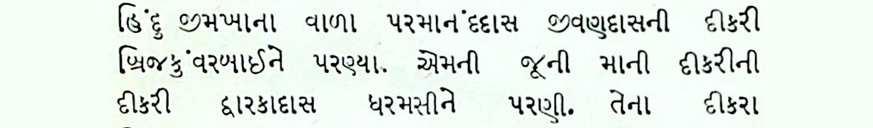 હિંદુ જીમખાના વાળા પરમાનંદદાસ જીવણદાસની દીકરી
બ્રિજકુંવરબાઈને પરણ્યા. એમની જૂની માની દીકરીની
દીકરી દ્વારકાદાસ ધરમસીને પરણી. તેના દીકરા